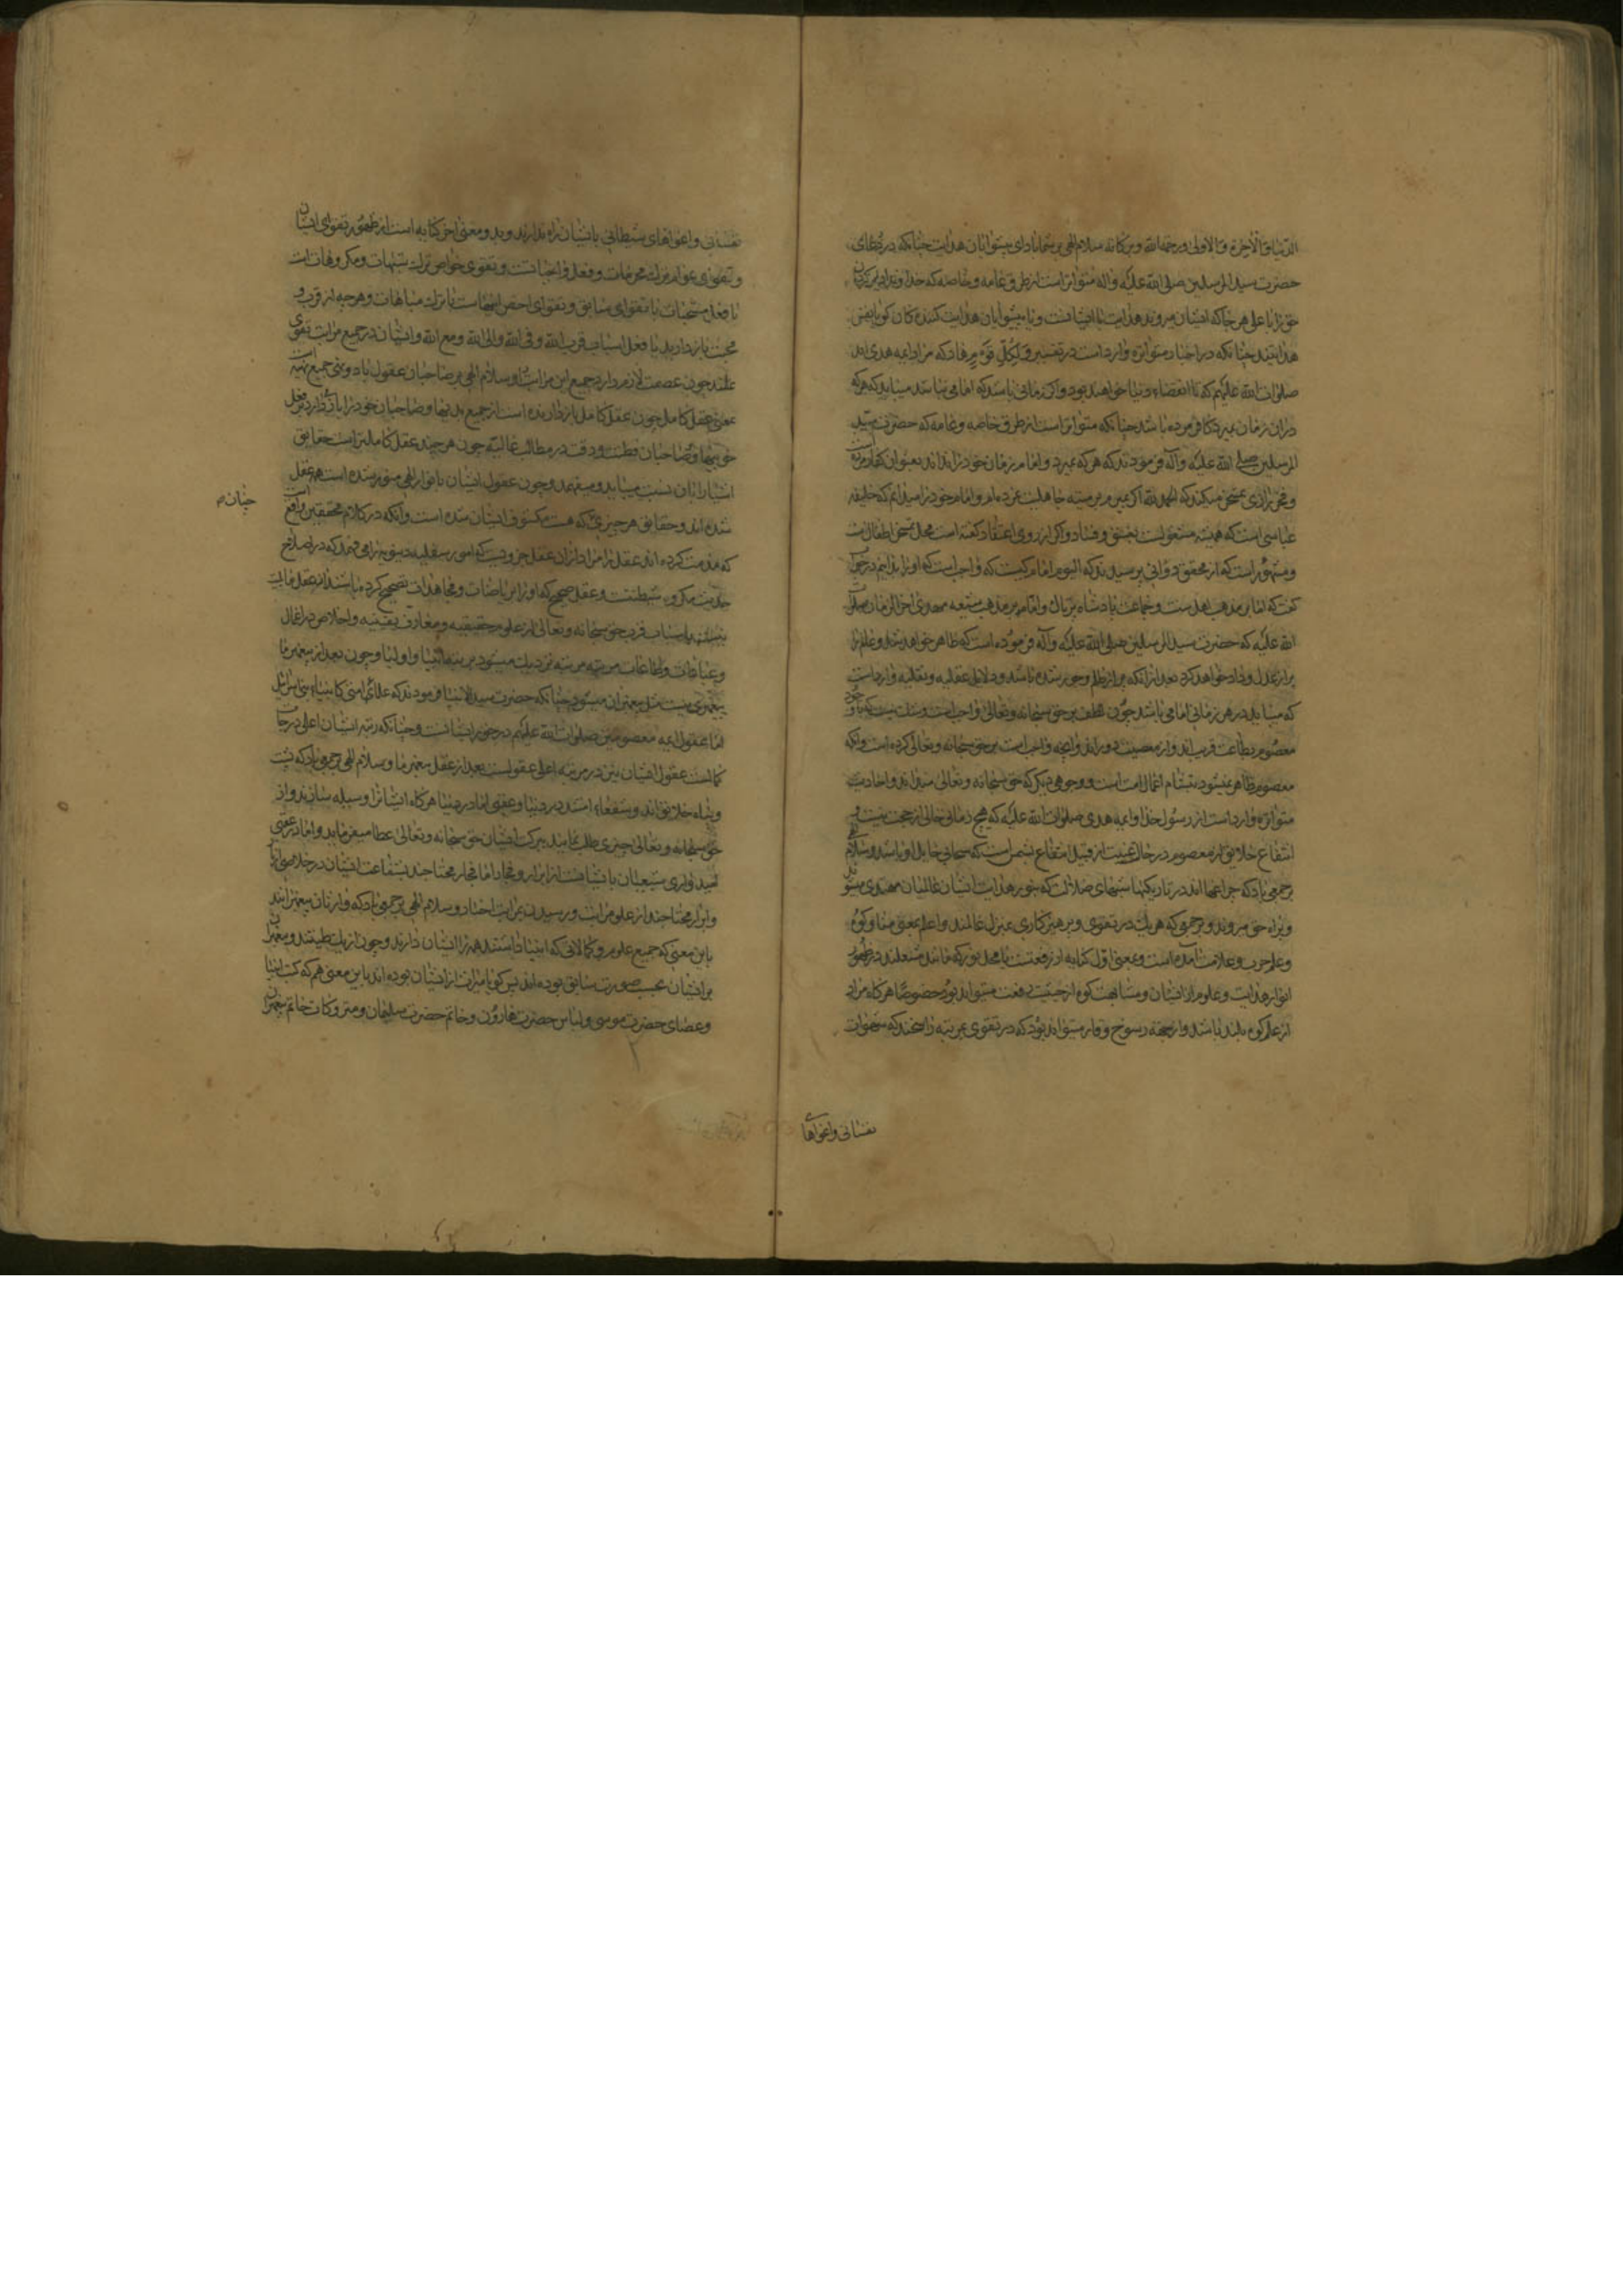 الدنیا والآخرة والاولی ورحمة الله وبرکاته سلام الهی بر شما باد ای پیشوایان هدایت چنانکه در دعای
حضرت سید المرسلین صلی الله علیه واله متواتر است از طرق عامه وخاصه که خداوندا
حق را با علی هر جا که ایشان میروند هدایت با ایشانست ویا پیشوایان هدایت کنندکان کویا نفس
هدایتند چنانکه در اخبار متواتره وارد است در تفسیر ولکل قوم هاد که مراد ائمه هدی اند
صلوات الله علیهم که تا انقضاء دنیا خواهند بود واکر زمانی باشد که امامی نباشد میباید که هر که
دران زمان بمیرد کافر مرده باشد چنانکه متواتر است از طرق خاصه وعامه که حضرت سید
المرسلین صلی الله علیه وآله فرمودند که هر که بمیرد وامام زمان خود را نداند بعنوان کفار مرده است
وفخر رازی تمسخر میکند که الحمد لله اکر بمیرم بر میته جاهلیت نمرده ام وامام خود را میدانم که خلیفه
عباسی است که همیشه مشغولست بفسق وفساد واکر از روی اعتقاد کفته است محل تمسخر اطفال است
ومشهور است که از محقق دوانی پرسیدند که الیوم امام کیست که واجب است که او را بدانیم در جواب
کفت که امام بر مذهب اهل سنت وجماعت پادشاه وامام بر مذهب شیعه مهدی آخر الزمان صلوات
الله علیه که حضرت سید المرسلین صلی الله علیه وآله فرموده است که ظاهر خواهد شد وعالم را
پر از عدل وداد خواهد کرد بعد از انکه پر از ظلم وجور شده باشد ودلایل عقلیه ونقلیه وارد است
که میباید در هر زمانی امامی باشد چون لطف بر حق سبحانه وتعالی واجب است وشک نیست که با وجود
معصوم بطاعت قریب اند واز معصیت دوراند وانچه واجب است بر حق سبحانه وتعالی کرده است وانکه
معصوم ظاهر نمیشود بشآم اعمال امت است ووجوهی دیکر که حق سبحانه وتعالی میداند واحادیث
متواتره وارد است از رسول خدا وائمه هدی صلوات الله علیه که هیچ زمانی خالی از حجت نیست و
انتفاع خلایق از معصوم در حال غیبت از قبیل انتفاع بشمس است که سحابی حایل او باشد وسلام
بر جمعی باد که چراغها اند در تاریکیها شبهای ضلالت که بنور هدایت ایشان عالمیان مهتدی میشوند
وبراه حق میروند وبر جمعی که هر یک در تقوی وپرهیزکاری بمنزله عالمند واعلم بمعنی منار وکوه
وعلم حرب وعلامت آمده است وبمعنی اول کنایه از رفعتست یا محل نور که مانند مشعلند در ظهور
انوار هدایت وعلوم از ایشان ومشابهت کوه از حیثیت رفعت میتواند بود خصوصا هر کاه مراد
از علم کوه بلند باشد واز جهة رسوخ ووقار میتواند بود که در تقوی بمرتبه راسخند که شهوات
نفسانی واغواهای
نفسانی واغواهای شیطانی بایشان راه ندارند وبدو معنی اخر کنایه است از ظهور تقوای ایشان
وتقوی عوام ترک محرمات وفعل واجباتست وتقوی خواص ترک شبهات ومکروهات است
با فعل مستحبات با تقوای سابق وتقوای اخص انهاست با ترک مباحات وهر چه از قرب و
محبت باز دارد با فعل اسباب قرب الله وفی الله والی الله ومع الله وایشان در جمیع مراتب تقوی
علمند چون عصمت لازم دارد جمیع این مراتب را وسلام الهی بر صاحبان عقول باد ونهی جمیع نهیه است
بمعنی عقل کامل چون عقل کامل بازدارنده است از جمیع بدیها وصاحبان خود را باز میدارد بر فعل
خوبیها وصاحبان فطنت ودقت در مطالب عالیه چون هر چند عقل کاملتر است حقایق
اشیا را بان نسبت مییابد ومیفهمد وچون عقول ایشان بانوار الهی منور شده است همه عقل
شده اند وحقایق هر چیزی که هست مکشوف ایشان شده است وآنکه در کلام محققین واقع است
که مذمت کرده اند عقل را مراد ازان عقل جزویست که امور سفلیه دنیویه را می فهمد که در اصلاح
حدیث مکر وشیطنت وعقل صحیح که او را بریاضات ومجاهدات تصحیح کرده باشند از عقل
باسباب قرب حق سبحانه وتعالی از علوم حقیقیه ومعارف یقینیه واخلاص در اعمال
وعبادات وطاعات مرتبه مرتبه نزدیک میشود بمرتبه انبیا واولیا وچون بعد از پیغمبر ما
پیغمبری نیست مثل پیغمبران میشود چنانکه حضرت سید الانبیا فرمودند که علمای امتی کانبیاء بنی اسرائیل
اما عقول ائمه معصومین صلوات الله علیهم در خور ایشانست وچنانکه رتبه ایشان اعلی درجات
کمالست عقول ایشان نیز در مرتبه اعلی عقولست بعد از عقل پیغمبر ما وسلام الهی بر جمعی باد که پشت
وپناه خلایق اند وشفعاء امتند در دنیا وعقبی اما در دنیا هر کاه ایشان را وسیله سازند واز
حق سبحانه وتعالی چیزی طلب نمایند ببرکت ایشان حق سبحانه وتعالی عطا میفرماید واما در عقبی
امیدواری شیعیان بایشانست از ابرار وفجار اما فجار محتاجند بشفاعت ایشان در خلاصی از نار
وابرار محتاجند از علو مراتب ورسیدن بمراتب اخیار وسلام الهی بر جمعی باد که وارثان پیغمبرانند
باین معنی که جمیع علوم وکمالاتی که انبیا داشتند همه را ایشان دارند وچون از یک طینتند وپیغمبران
بر ایشان بحسب صورت سابق بوده اند پس کویا میراث از ایشان بوده اند باین معنی هم که کتب انبیا
وعصای حضرت موسی ولباس حضرت هارون وخاتم حضرت سلیمان ومتروکات خاتم پیغمبران
چنان